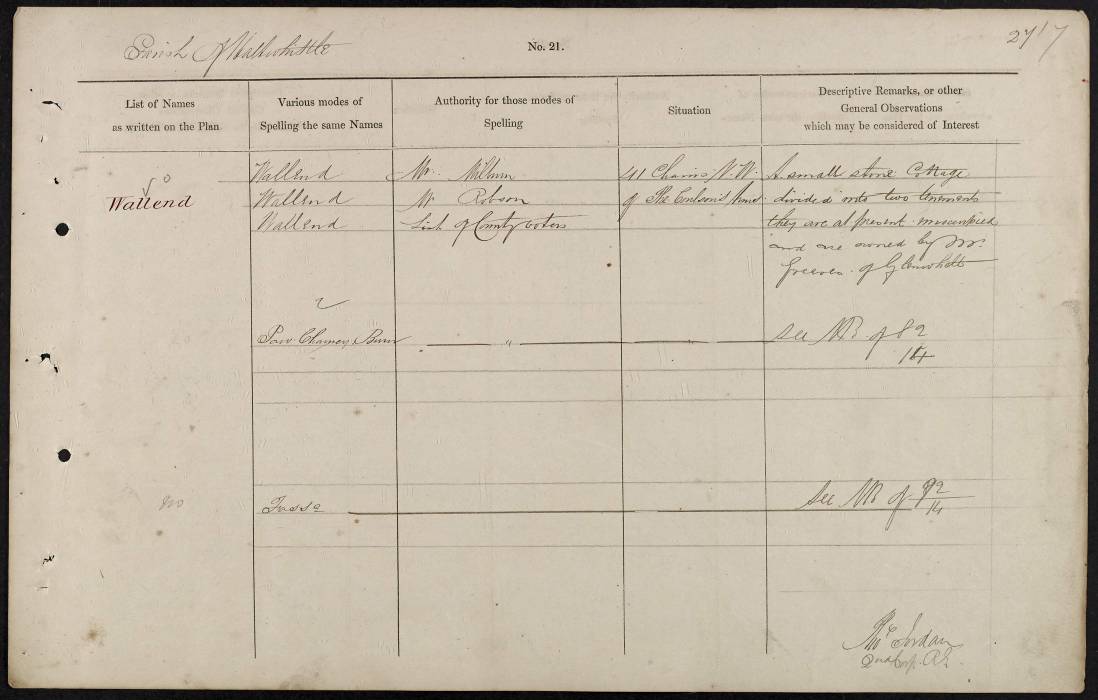 Parish of Haltwhistle
No. 21.
27
17
List of Names
as written on the Plan
Various modes of
Spelling the same Names
Authority for those modes of
Spelling
Situation
Descriptive Remarks, or other
General Observations
which may be considered of Interest
Wallend
Wallend Mr. Milburn 41 Chains N.W. A small stone Cottage
Wallend Mr Robson of The divided into two tenements
Wallend List of County voters they are at present unoccupied
and are owned by Mr.
Greaves of Glenwhelt
Burn " " See NB of 82
14
no
Fossa See NB of 92
14
Thos Jordan
2nd Corp. R.E.